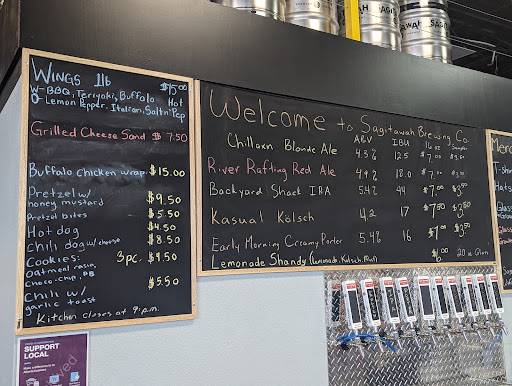 WINGS 1lb $15.00
W-BBQ, Teriyaki, Buffalo Hot
O-Lemon Pepper, Italian, Salt n' Pep
Grilled Cheese Sand $7.50
Buffalo chicken wrap $15.00
Pretzel w/ $9.50
honey mustard
Pretzel bites $5.50
Hot dog $4.50
Chili dog w/ cheese $8.50
Cookies: 3pc. $9.50
Oatmeal raisin,
choco.chip, PB
Chili w/ $5.50
garlic toast
Kitchen closes at 9:p.m.
Welcome to Sagitawah Brewing Co.
ABV IBU 16 oz Sample
Chillaxn Blonde Ale 4.3% 12.5 $7.00
River Rafting Red Ale 4.9% 18.0 $7.00
Backyard Shack IPA 5.4% 44 $7.00 $3.50
Kasual Kölsch 4.2 17 $7.50
Early Morning Creamy Porter 5.4% 16 $7.00
Lemonade Shandy (Lemonade, Kolsch, Mint) $6.00 20 oz Glass
T-shi
Hats
Glass
Glass
SUPPORT
LOCAL